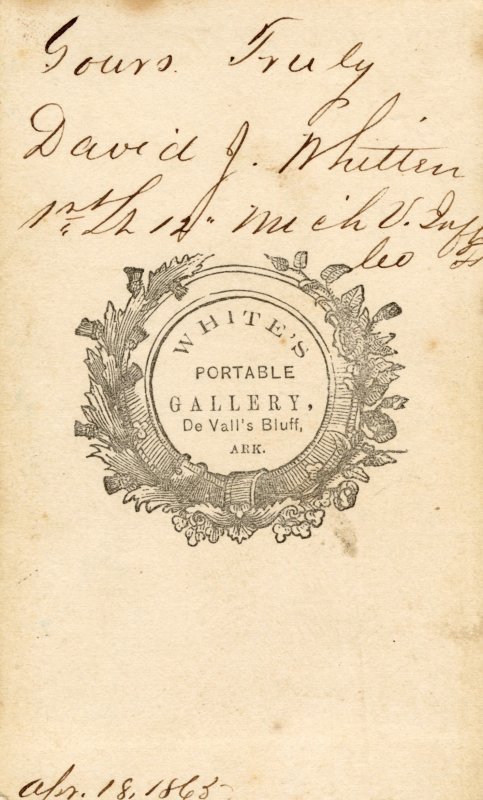 Yours Truly
David J. Whitten
1st Lt 12" Mich V. Inf
Co
WHITE'S
PORTABLE
GALLERY,
De Vall's Bluff,
ARK.
Apr. 18, 1865